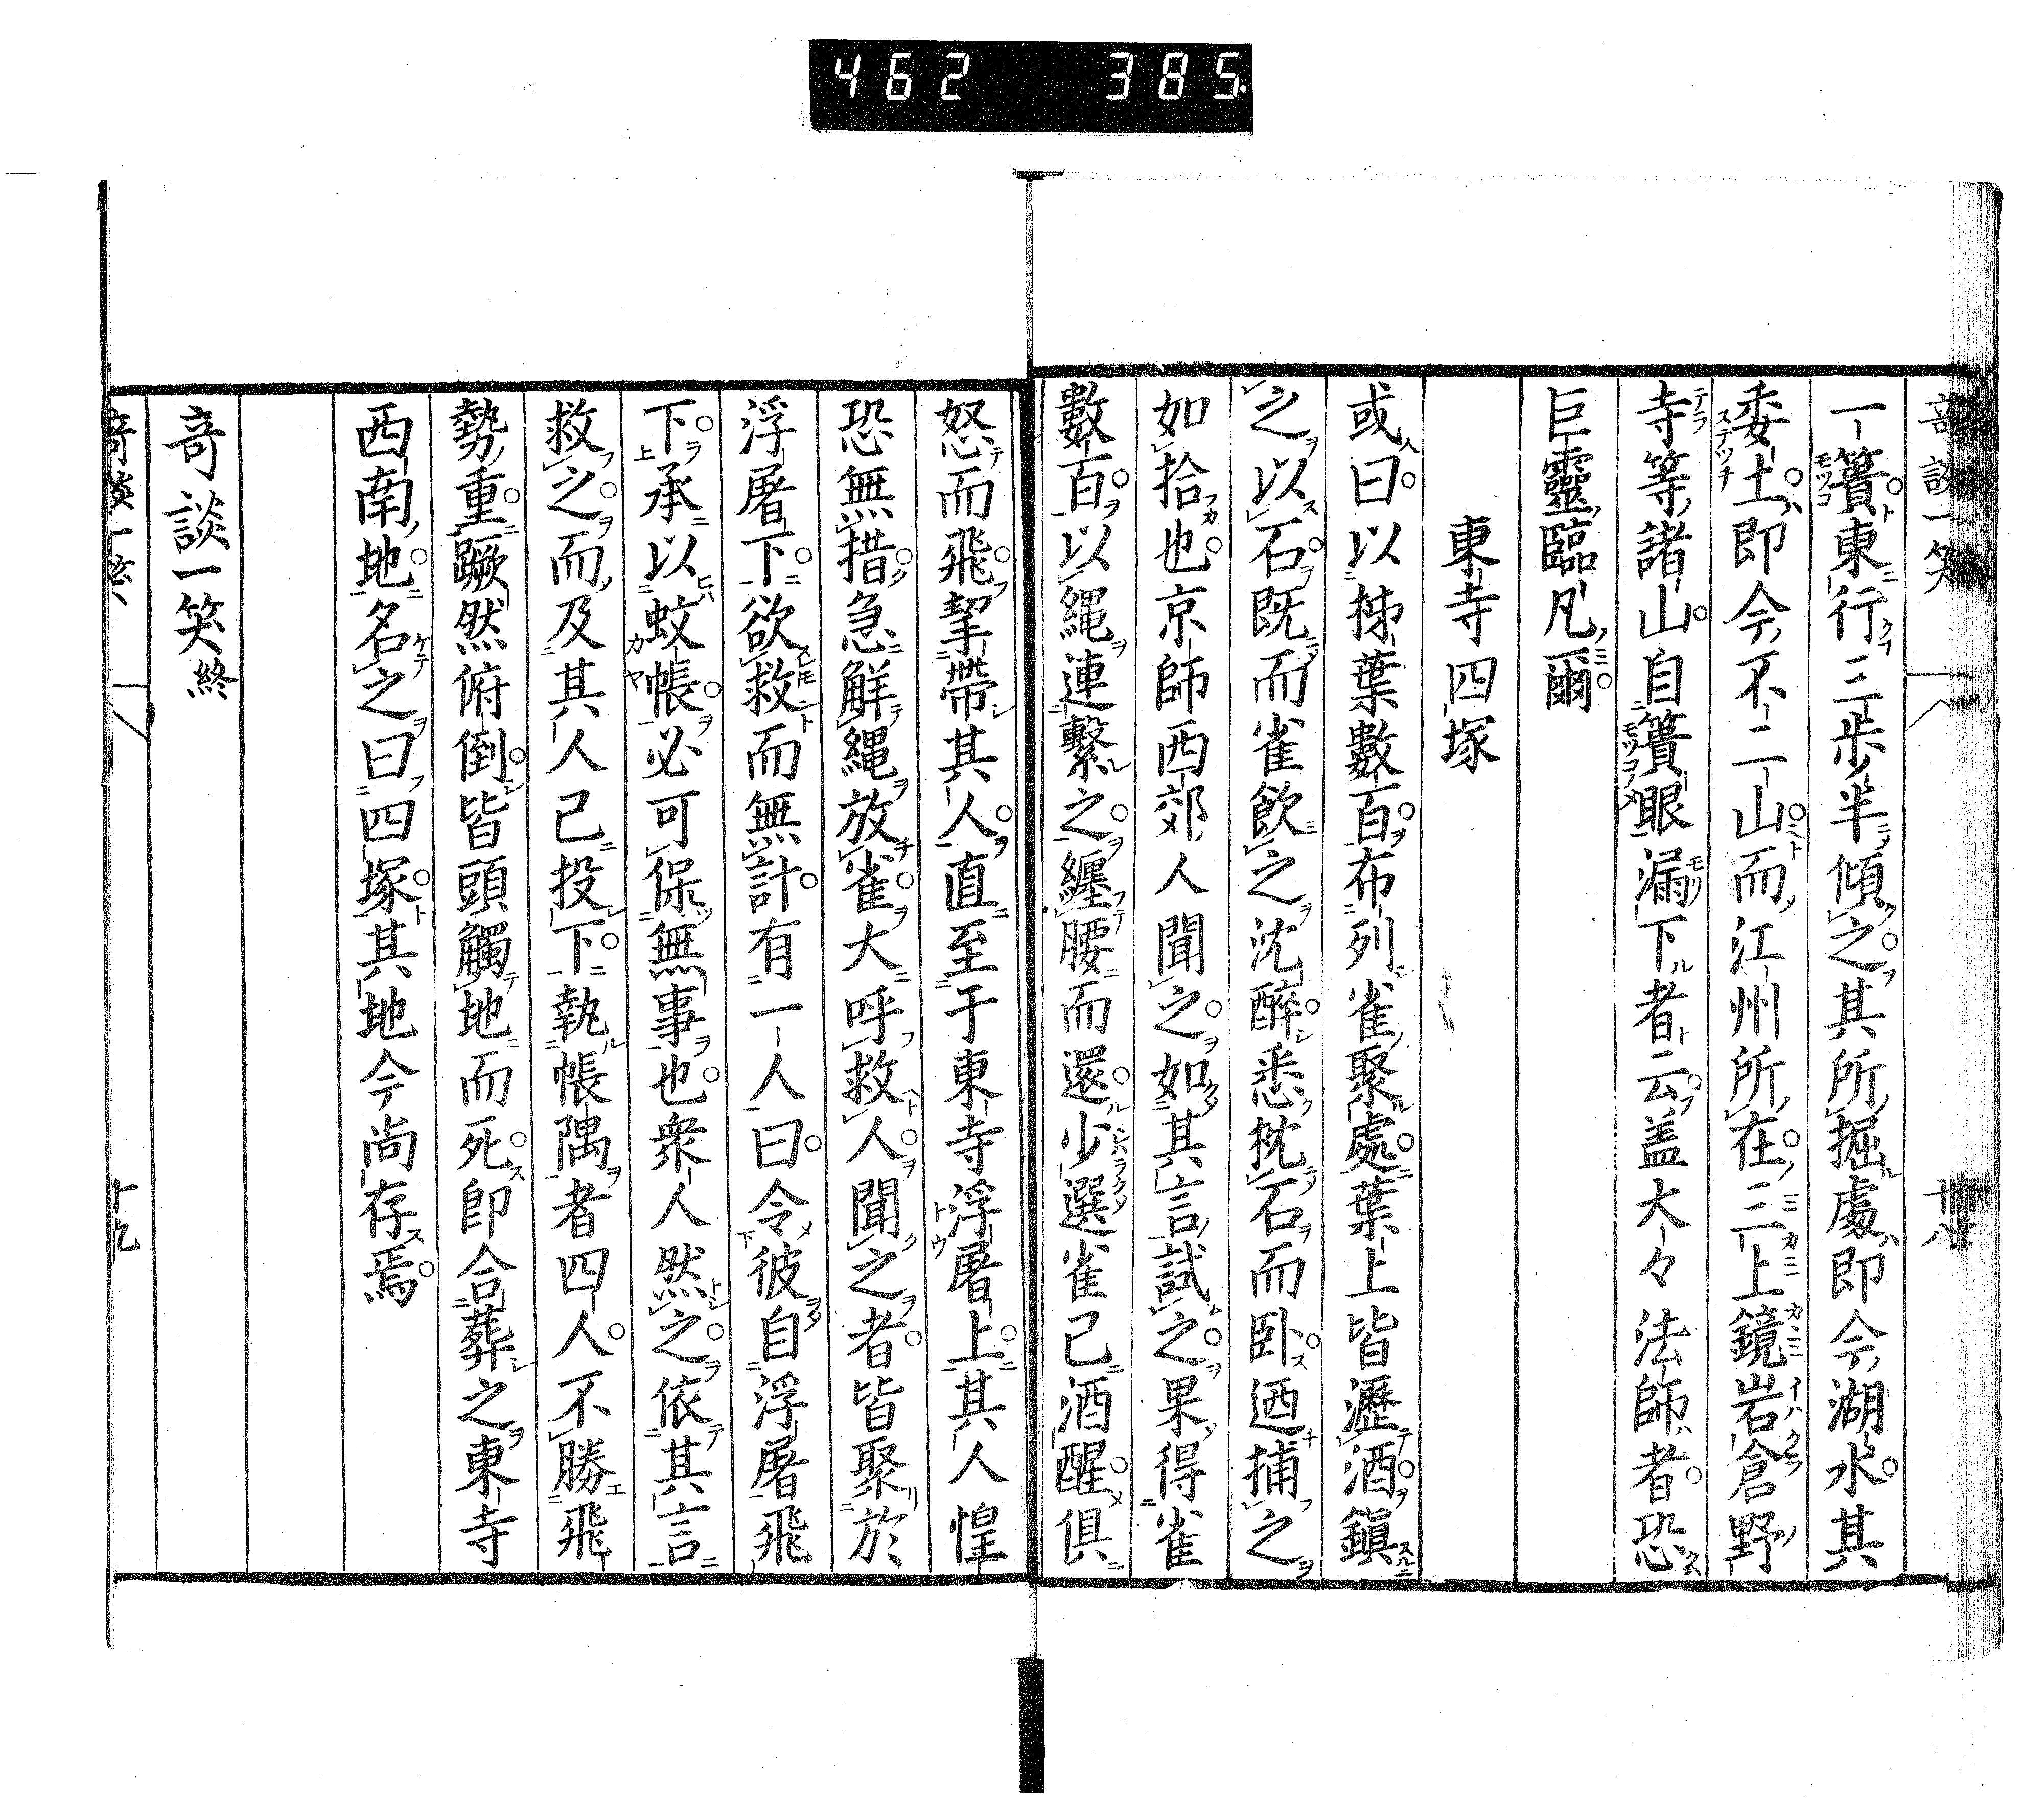 462 385
一簣東行三歩半傾之其所掘處即今湖水其
委土即今不二山而江州所在三上鏡岩倉野
寺等諸山自簣眼漏下者云盖大々法師者恐
巨靈臨凡爾
東寺四塚
或曰以㭏葉數百布列雀聚處葉上皆瀝酒鎭
之以石既而雀飲之沈醉悉枕石而卧迺捕之
如拾也京師西郊人聞之如其言試之果得雀
數百以繩連繋之纏腰而還少選雀已酒醒俱
怒而飛挈帶其人直至于東寺浮屠上其人惶
恐無措急鮮縄放雀大呼救人聞之者皆聚於
浮屠下欲救而無計有一人曰令彼自浮屠飛
下承以蚊帳必可保無事也衆人然之依其言
救之而及其人已投下執帳隅者四人不勝飛
勢重蹶然俯倒皆頭觸地而死即合葬之東寺
西南地名之曰四塚其地今尚存焉
竒談一笑終